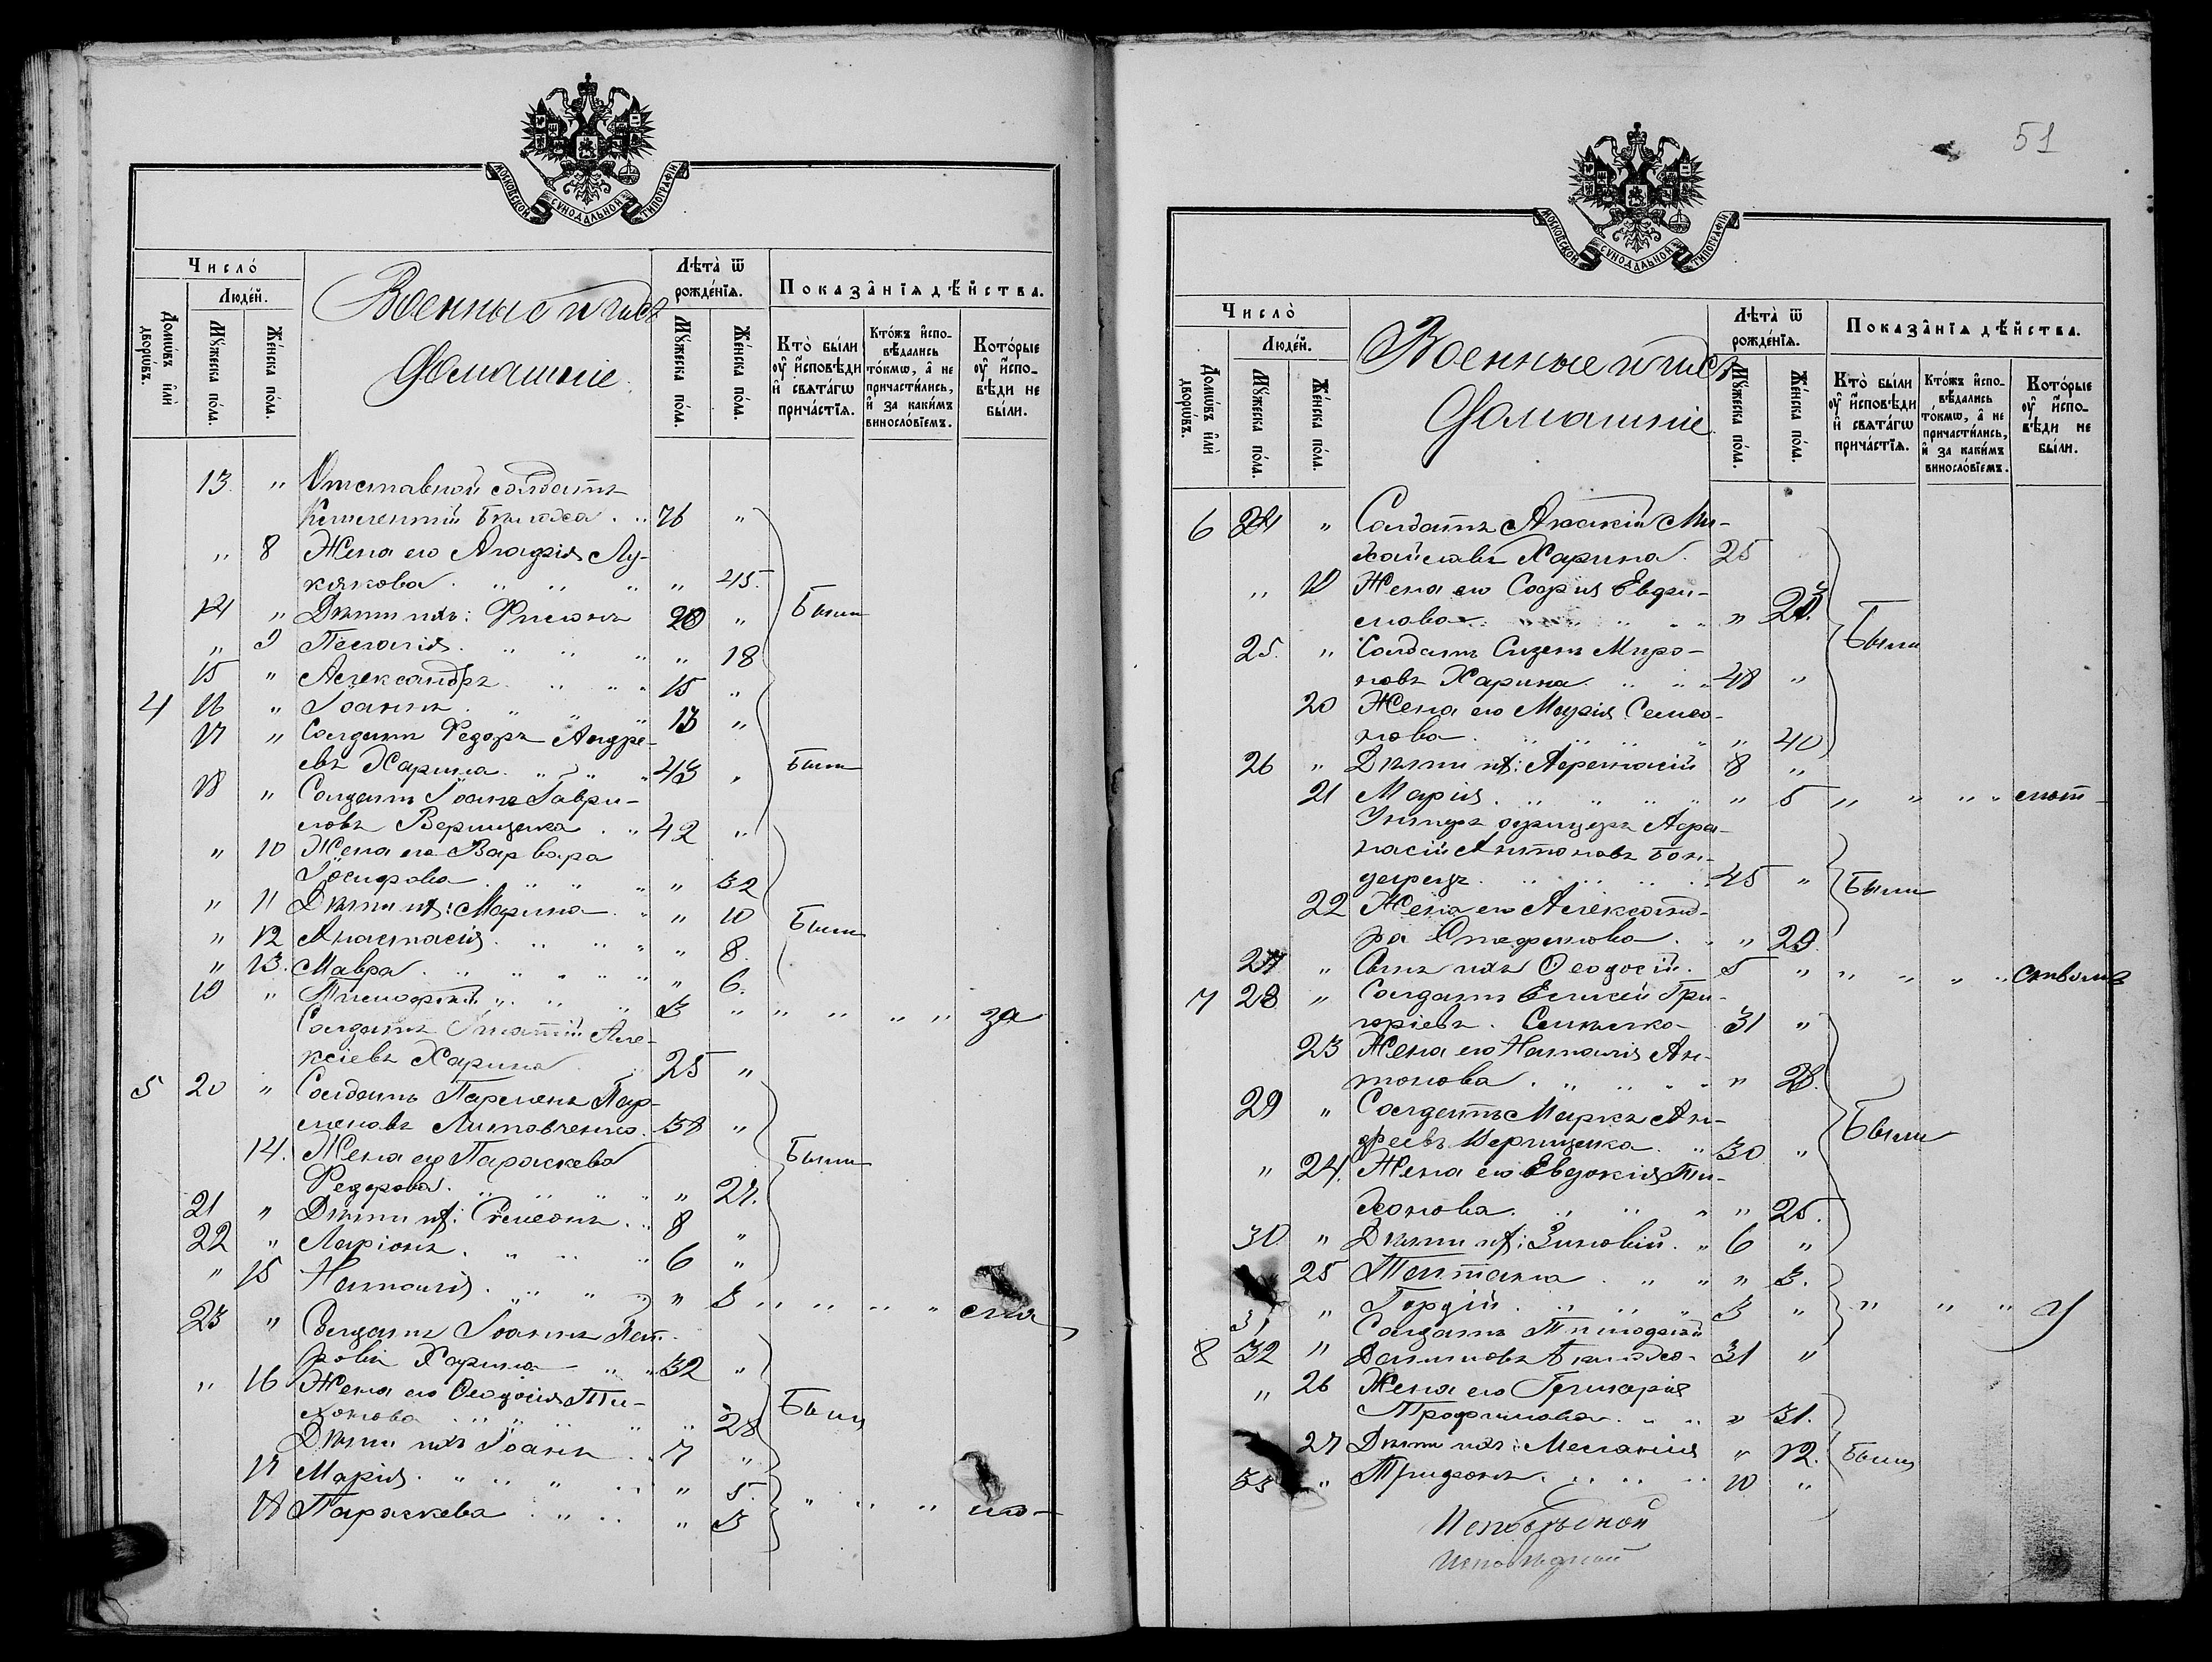 МОСКОВСКОЙ СѴНОДАЛЬНОЙ ТИПОГРАФІИ
Число̀
Людéй.
Домѡ́въ и҆лѝ дворѡ́въ.
Мꙋ́жеска по́ла.
Же́нска по́ла.
Военные и ихъ
Домашніе.
Лѣта̀ ѿ рожде́нїѧ.
Мꙋ́жеска по́ла.
Же́нска по́ла.
Показа̂нїѧ дѣ́йства.
Кто̀ бы́ли ᲂу҆ и҆сповѣ́ди и҆ свѧта́гѡ прича́стїѧ.
Кто́жъ и҆спо-вѣ́дались то́кмѡ, а҆ не причасти́лись, и҆ за каки́мъ винословїемъ.
Кото́рые ᲂу҆ и҆спо-вѣ́ди не бы́ли.
13. " Отставной солдатъ
76 "
" 8 Жена его Агафія Лу-
кьянова . " " " " 45.
14 " Дѣти ихъ: Филонъ 20 " Были
" 9 Пелагія. " " " " 18
15 " Александръ. " " " 15 "
4 16 " Іоаннъ. " " " 13 "
17 " Солдатъ Ѳедоръ Андре-
евъ Харина. " " " 43 " Были
18 " Солдатъ Іоаннъ Гаври-
ловъ Верищака . " 42 "
" 10 Жена его Варвара
Іосифова . " " " " 32
" 11 Дѣти ихъ: Марина " " 10 Были
" 12 Анастасія. " " " " 8.
" 13. Мавра. " " " " " 6.
19 " Тимофей " " " 3 " " " " " за
Солдатъ Игнатій Але-
ксіевъ Харина 25 "
5 20 " Солдатъ Парменъ Пар-
меновъ Литовченко. 38 "
14. Жена его Параскева Были
Ѳедорова. " " " " " 27.
21 " Дѣти ихъ: Симеонъ. " 8 "
22 " Ларіонъ. " " " 6 "
" 15 Наталія. " " " " 3 " " " "
23 " Солдатъ Іоаннъ Пет-
ровъ Харина " " 32 "
" 16 Жена его Ѳеодосія Ти-
хонова " " " " " 28 Были
Дѣти ихъ Іоаннъ . " 7 "
17 Марія. " " " " " 5.
18 Параскева . " " " 3 " " " ло-
51
МОСКОВСКОЙ СѴНОДАЛЬНОЙ ТИПОГРАФІИ
Число̀
Людéй.
Домѡ́въ и҆лѝ дворѡ́въ.
Мꙋ́жеска по́ла.
Же́нска по́ла.
Военные и ихъ
Домашніе
Лѣта̀ ѿ рожде́нїѧ.
Мꙋ́жеска по́ла.
Же́нска по́ла.
Показа̂нїѧ дѣ́йства.
Кто̀ бы́ли ᲂу҆ и҆сповѣ́ди и҆ свѧта́гѡ прича́стїѧ.
Кто́жъ и҆спо-вѣ́дались то́кмѡ, а҆ не причасти́лись, и҆ за каки́мъ винословїемъ.
Кото́рые ᲂу҆ и҆спо-вѣ́ди не бы́ли.
6 24 " Солдатъ Акакій Ми-
хайловъ Харина. 25
" 19 Жена его Софія Евфи-
мова " " " " "
25. " Солдатъ Миро- Были
новъ Харина. " " " 48 "
20 Жена его Марія Семео-
нова. " " " " " 40
26 " Дѣти ихъ: Аѳанасій 8 "
21 Марія. " " " " " 5 " " " " лѣт-
Унтеръ офицеръ Аѳа-
насій Антоновъ Бон-
даренъ. " " " 45 " Были
22 Жена его Александ-
ра Стефанова. " " 29.
27 " Сынъ ихъ Ѳеодосій. 5 " " " " " ствомъ
7 28 " Солдатъ Елисей Гри-
горіевъ. 31 "
23 Жена его Наталія Ан-
тонова. " " " " " 28.
29 " Солдатъ Маркъ Ан-
дреевъ Верищака. " 30 " Были
" 24. Жена его Евдокія Ти-
хонова. " " " " 25.
30 " Дѣти ихъ: Зиновій. " 6 "
25 Татіана . " " " 3.
31 " Гордій. " " " 3 " " " " У
Солдатъ Тимофей
8 32 " 31 "
" 26 Жена его Гликерія
Трофимова. " " " 31.
27 Дѣти ихъ: Меланія " 12. Были
33 " Трифонъ. " " " 10 "
Исповѣдной